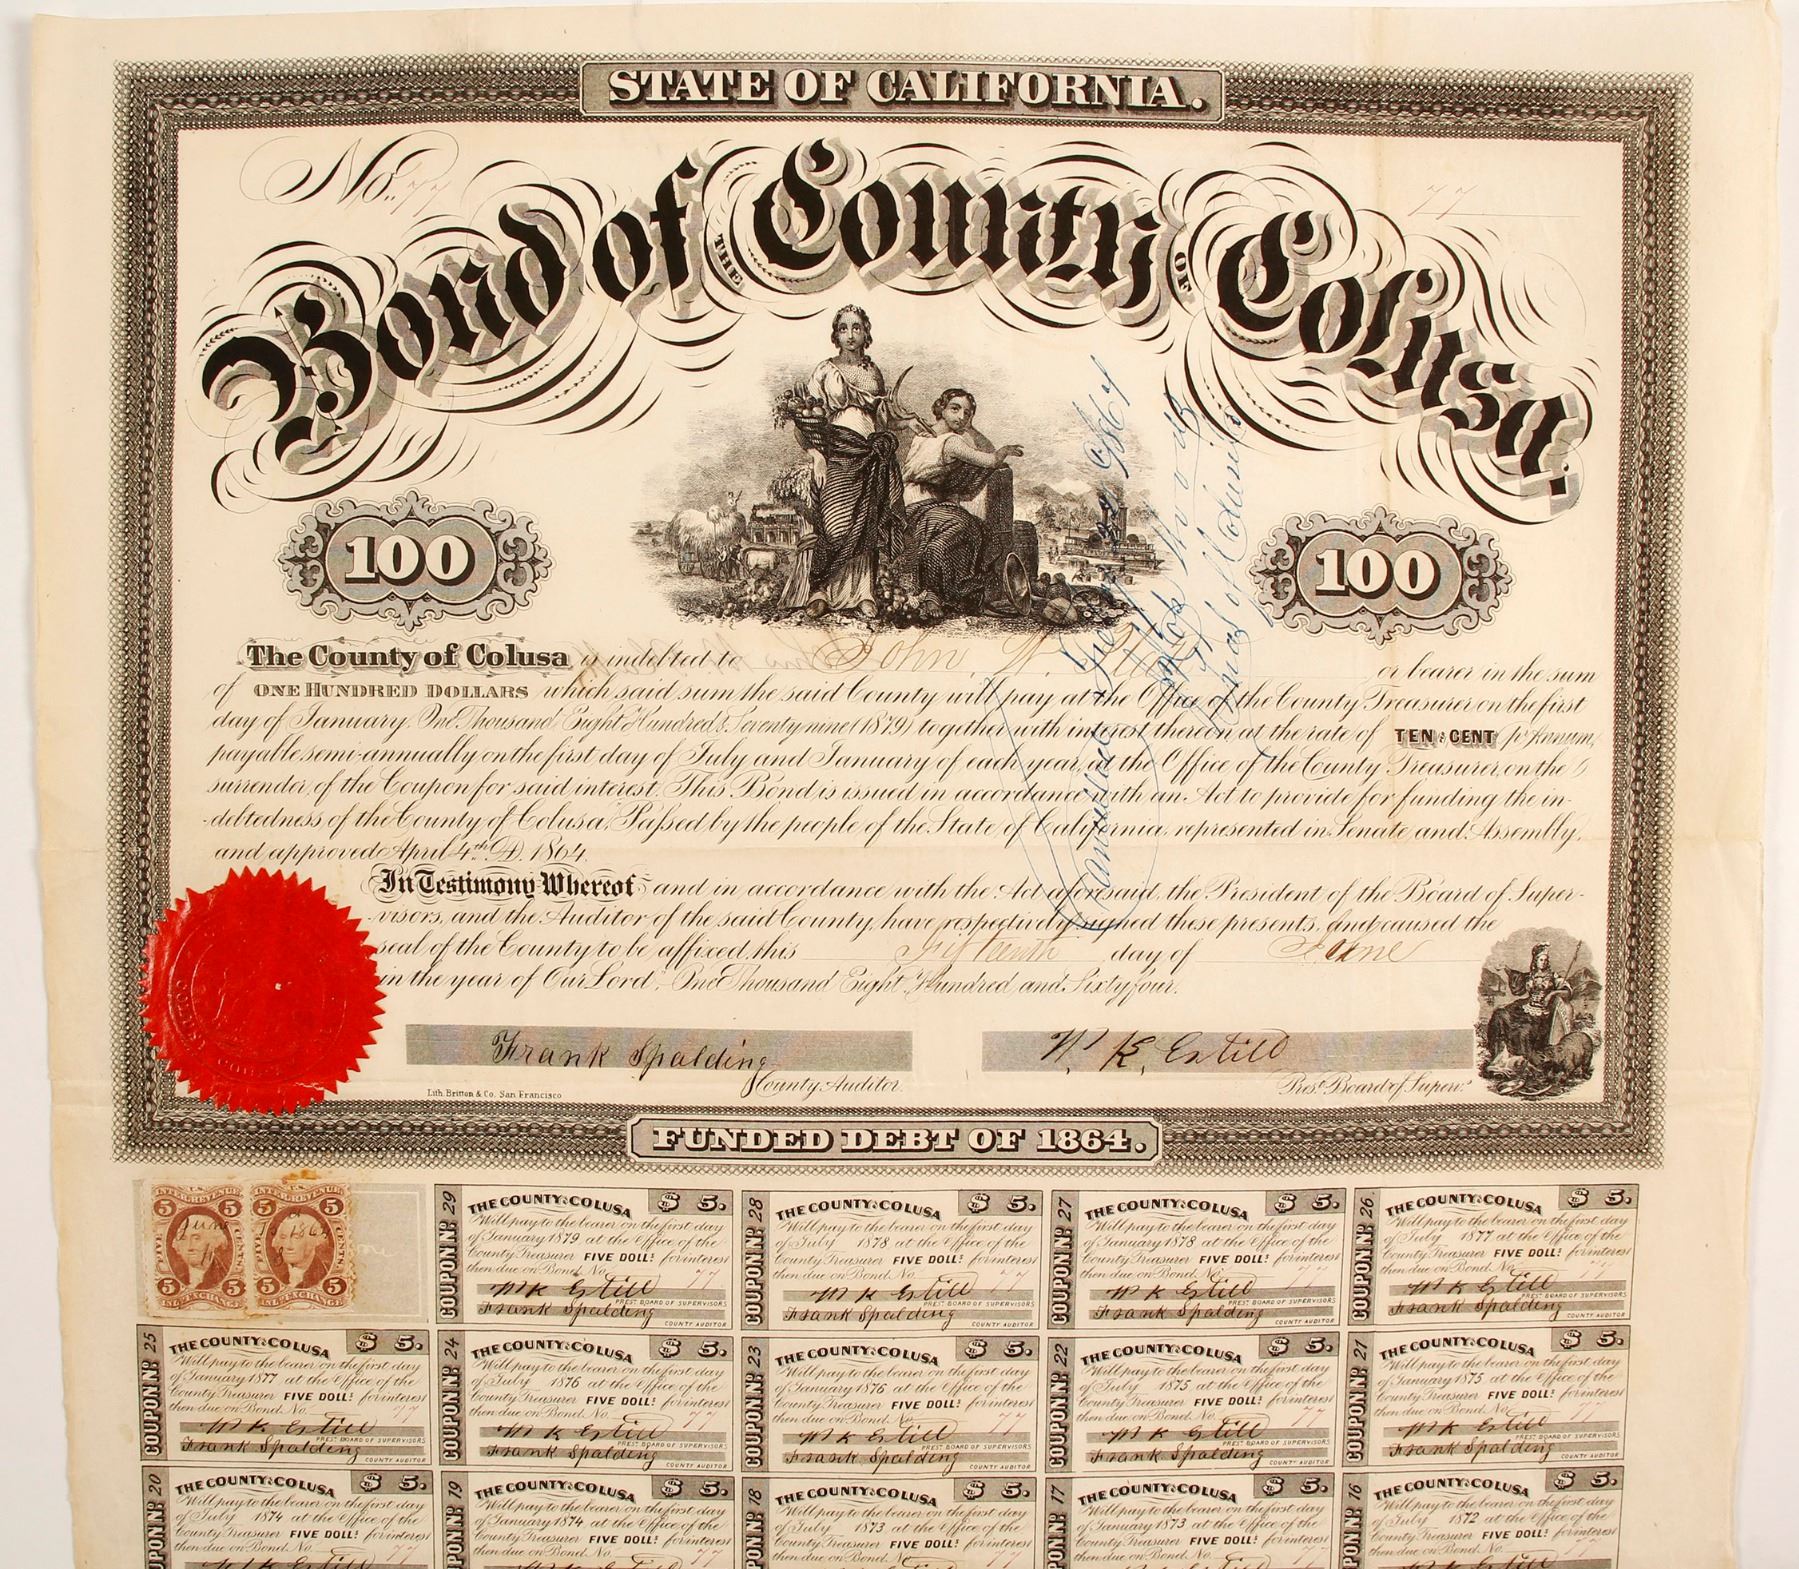 STATE OF CALIFORNIA.
No. 77
77
Bond of THE County OF Colusa.
100
100
The County of Colusa is indebted to John W. or bearer in the sum
of ONE HUNDRED DOLLARS which said sum the said County will pay at the Office of the County Treasurer on the first
day of January, One Thousand Eight Hundred & Seventy nine (1879) together with interest thereon at the rate of TEN PR CENT pr Annum,
payable semi-annually on the first day of July and January of each year, at the Office of the County Treasurer, on the
surrender, of the Coupon for said interest. This Bond is issued in accordance with an Act to provide for funding the in-
-debtedness of the County of Colusa, Passed by the people of the State of California, represented in Senate and Assembly,
and approved April 4th A.D. 1864.
In Testimony Whereof and in accordance with the Act aforesaid, the President of the Board of Super-
-visors, and the Auditor of the said County, have respectively signed these presents, and caused the
seal of the County to be affixed, this Fifteenth day of June
in the year of Our Lord, One Thousand Eight Hundred and Sixty four.
Cancelled
Frank Spalding
County Auditor
W. K. Estill
Prest. Board of Superv.s
Lith. Britton & Co. San Francisco
FUNDED DEBT OF 1864.
INTER. REVENUE
5 5
FIVE CENTS
5 5
INL. EXCHANGE
INTER. REVENUE
5 5
FIVE CENTS
5 5
INL. EXCHANGE
June 1864
COUPON No 29
THE COUNTY OF COLUSA $ 5.
Will pay to the bearer on the first day
of January 1879 at the Office of the
County Treasurer FIVE DOLLs for interest
then due on Bond No. 77
W K Estill
PREST. BOARD OF SUPERVISORS
Frank Spalding
COUNTY AUDITOR
COUPON No 28
THE COUNTY OF COLUSA $ 5.
Will pay to the bearer on the first day
of July 1878 at the Office of the
County Treasurer FIVE DOLLs for interest
then due on Bond No. 77
W K Estill
PREST. BOARD OF SUPERVISORS
Frank Spalding
COUNTY AUDITOR
COUPON No 27
THE COUNTY OF COLUSA $ 5.
Will pay to the bearer on the first day
of January 1878 at the Office of the
County Treasurer FIVE DOLLs for interest
then due on Bond No. 77
W K Estill
PREST. BOARD OF SUPERVISORS
Frank Spalding
COUNTY AUDITOR
COUPON No 26
THE COUNTY OF COLUSA $ 5.
Will pay to the bearer on the first day
of July 1877 at the Office of the
County Treasurer FIVE DOLLs for interest
then due on Bond No. 77
W K Estill
PREST. BOARD OF SUPERVISORS
Frank Spalding
COUNTY AUDITOR
COUPON No 25
THE COUNTY OF COLUSA $ 5.
Will pay to the bearer on the first day
of January 1877 at the Office of the
County Treasurer FIVE DOLLs for interest
then due on Bond No. 77
W K Estill
PREST. BOARD OF SUPERVISORS
Frank Spalding
COUNTY AUDITOR
COUPON No 24
THE COUNTY OF COLUSA $ 5.
Will pay to the bearer on the first day
of July 1876 at the Office of the
County Treasurer FIVE DOLLs for interest
then due on Bond No. 77
W K Estill
PREST. BOARD OF SUPERVISORS
Frank Spalding
COUNTY AUDITOR
COUPON No 23
THE COUNTY OF COLUSA $ 5.
Will pay to the bearer on the first day
of January 1876 at the Office of the
County Treasurer FIVE DOLLs for interest
then due on Bond No. 77
W K Estill
PREST. BOARD OF SUPERVISORS
Frank Spalding
COUNTY AUDITOR
COUPON No 22
THE COUNTY OF COLUSA $ 5.
Will pay to the bearer on the first day
of July 1875 at the Office of the
County Treasurer FIVE DOLLs for interest
then due on Bond No. 77
W K Estill
PREST. BOARD OF SUPERVISORS
Frank Spalding
COUNTY AUDITOR
COUPON No 21
THE COUNTY OF COLUSA $ 5.
Will pay to the bearer on the first day
of January 1875 at the Office of the
County Treasurer FIVE DOLLs for interest
then due on Bond No. 77
W K Estill
PREST. BOARD OF SUPERVISORS
Frank Spalding
COUNTY AUDITOR
COUPON No 20
THE COUNTY OF COLUSA $ 5.
Will pay to the bearer on the first day
of July 1874 at the Office of the
County Treasurer FIVE DOLLs for interest
then due on Bond No. 77
W K Estill
COUPON No 19
THE COUNTY OF COLUSA $ 5.
Will pay to the bearer on the first day
of January 1874 at the Office of the
County Treasurer FIVE DOLLs for interest
then due on Bond No. 77
COUPON No 18
THE COUNTY OF COLUSA $ 5.
Will pay to the bearer on the first day
of July 1873 at the Office of the
County Treasurer FIVE DOLLs for interest
then due on Bond No. 77
COUPON No 17
THE COUNTY OF COLUSA $ 5.
Will pay to the bearer on the first day
of January 1873 at the Office of the
County Treasurer FIVE DOLLs for interest
then due on Bond No. 77
COUPON No 16
THE COUNTY OF COLUSA $ 5.
Will pay to the bearer on the first day
of July 1872 at the Office of the
County Treasurer FIVE DOLLs for interest
then due on Bond No. 77